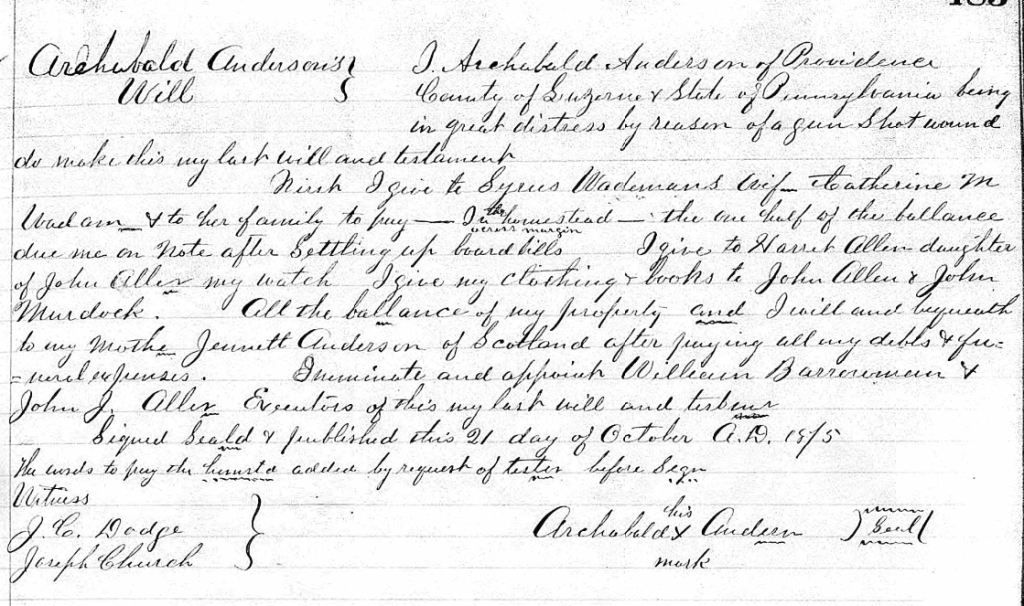 185
Archabald Anderson's
Will
I. Archabald Anderson of Providence
County of Luzerne & State of Pennsylvania being
in great distress by reason of a gun Shot wound
do make this my last will and testament
First I give to Syrus Wademans Wif Catherine M
Wadam & to her family to pay — In the homestead — the one half of the ballance
across margin
due me on Note after Settling up board bills I give to Harret Allen daughter
of John Allen my watch I give my clothing & books to John Allen & John
Murdock. All the ballance of my property and I will and bequeath
to my Mothe Jennett Anderson of Scotland after paying all my debts & fu=
=neral expenses. I nominate and appoint William Barrowman &
John J. Allen Executors of this my last will and
Signed Seald & published this 21 day of October A.D.
The words to pay the added by request of before
Witness
J. C. Dodge
Joseph Church
his
Archabald x Andern
mark
Seal